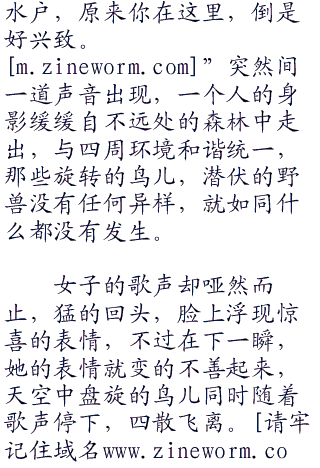 水户，原来你在这里，倒是
好兴致。
[m.zineworm.com]”突然间
一道声音出现，一个人的身
影缓缓自不远处的森林中走
出，与四周环境和谐统一，
那些旋转的鸟儿，潜伏的野
兽没有任何异样，就如同什
么都没有发生。
女子的歌声却哑然而
止，猛的回头，脸上浮现惊
喜的表情，不过在下一瞬，
她的表情就变的不善起来，
天空中盘旋的鸟儿同时随着
歌声停下，四散飞离。[请牢
记住域名www.zineworm.co